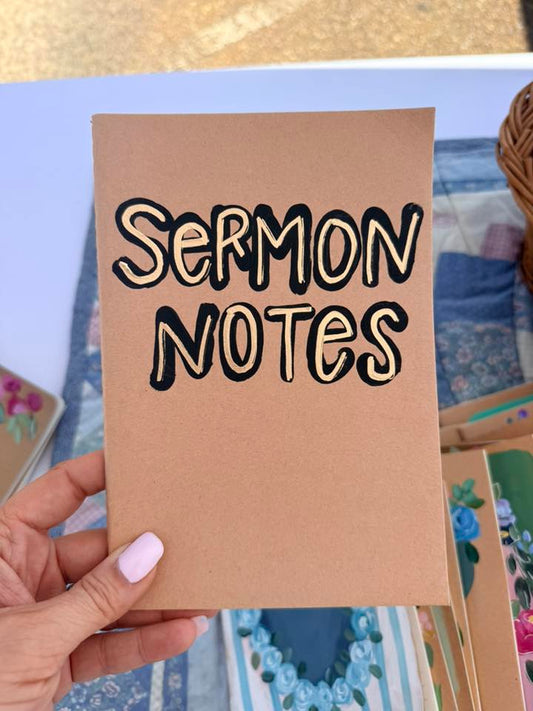 SeRMON
NOTeS